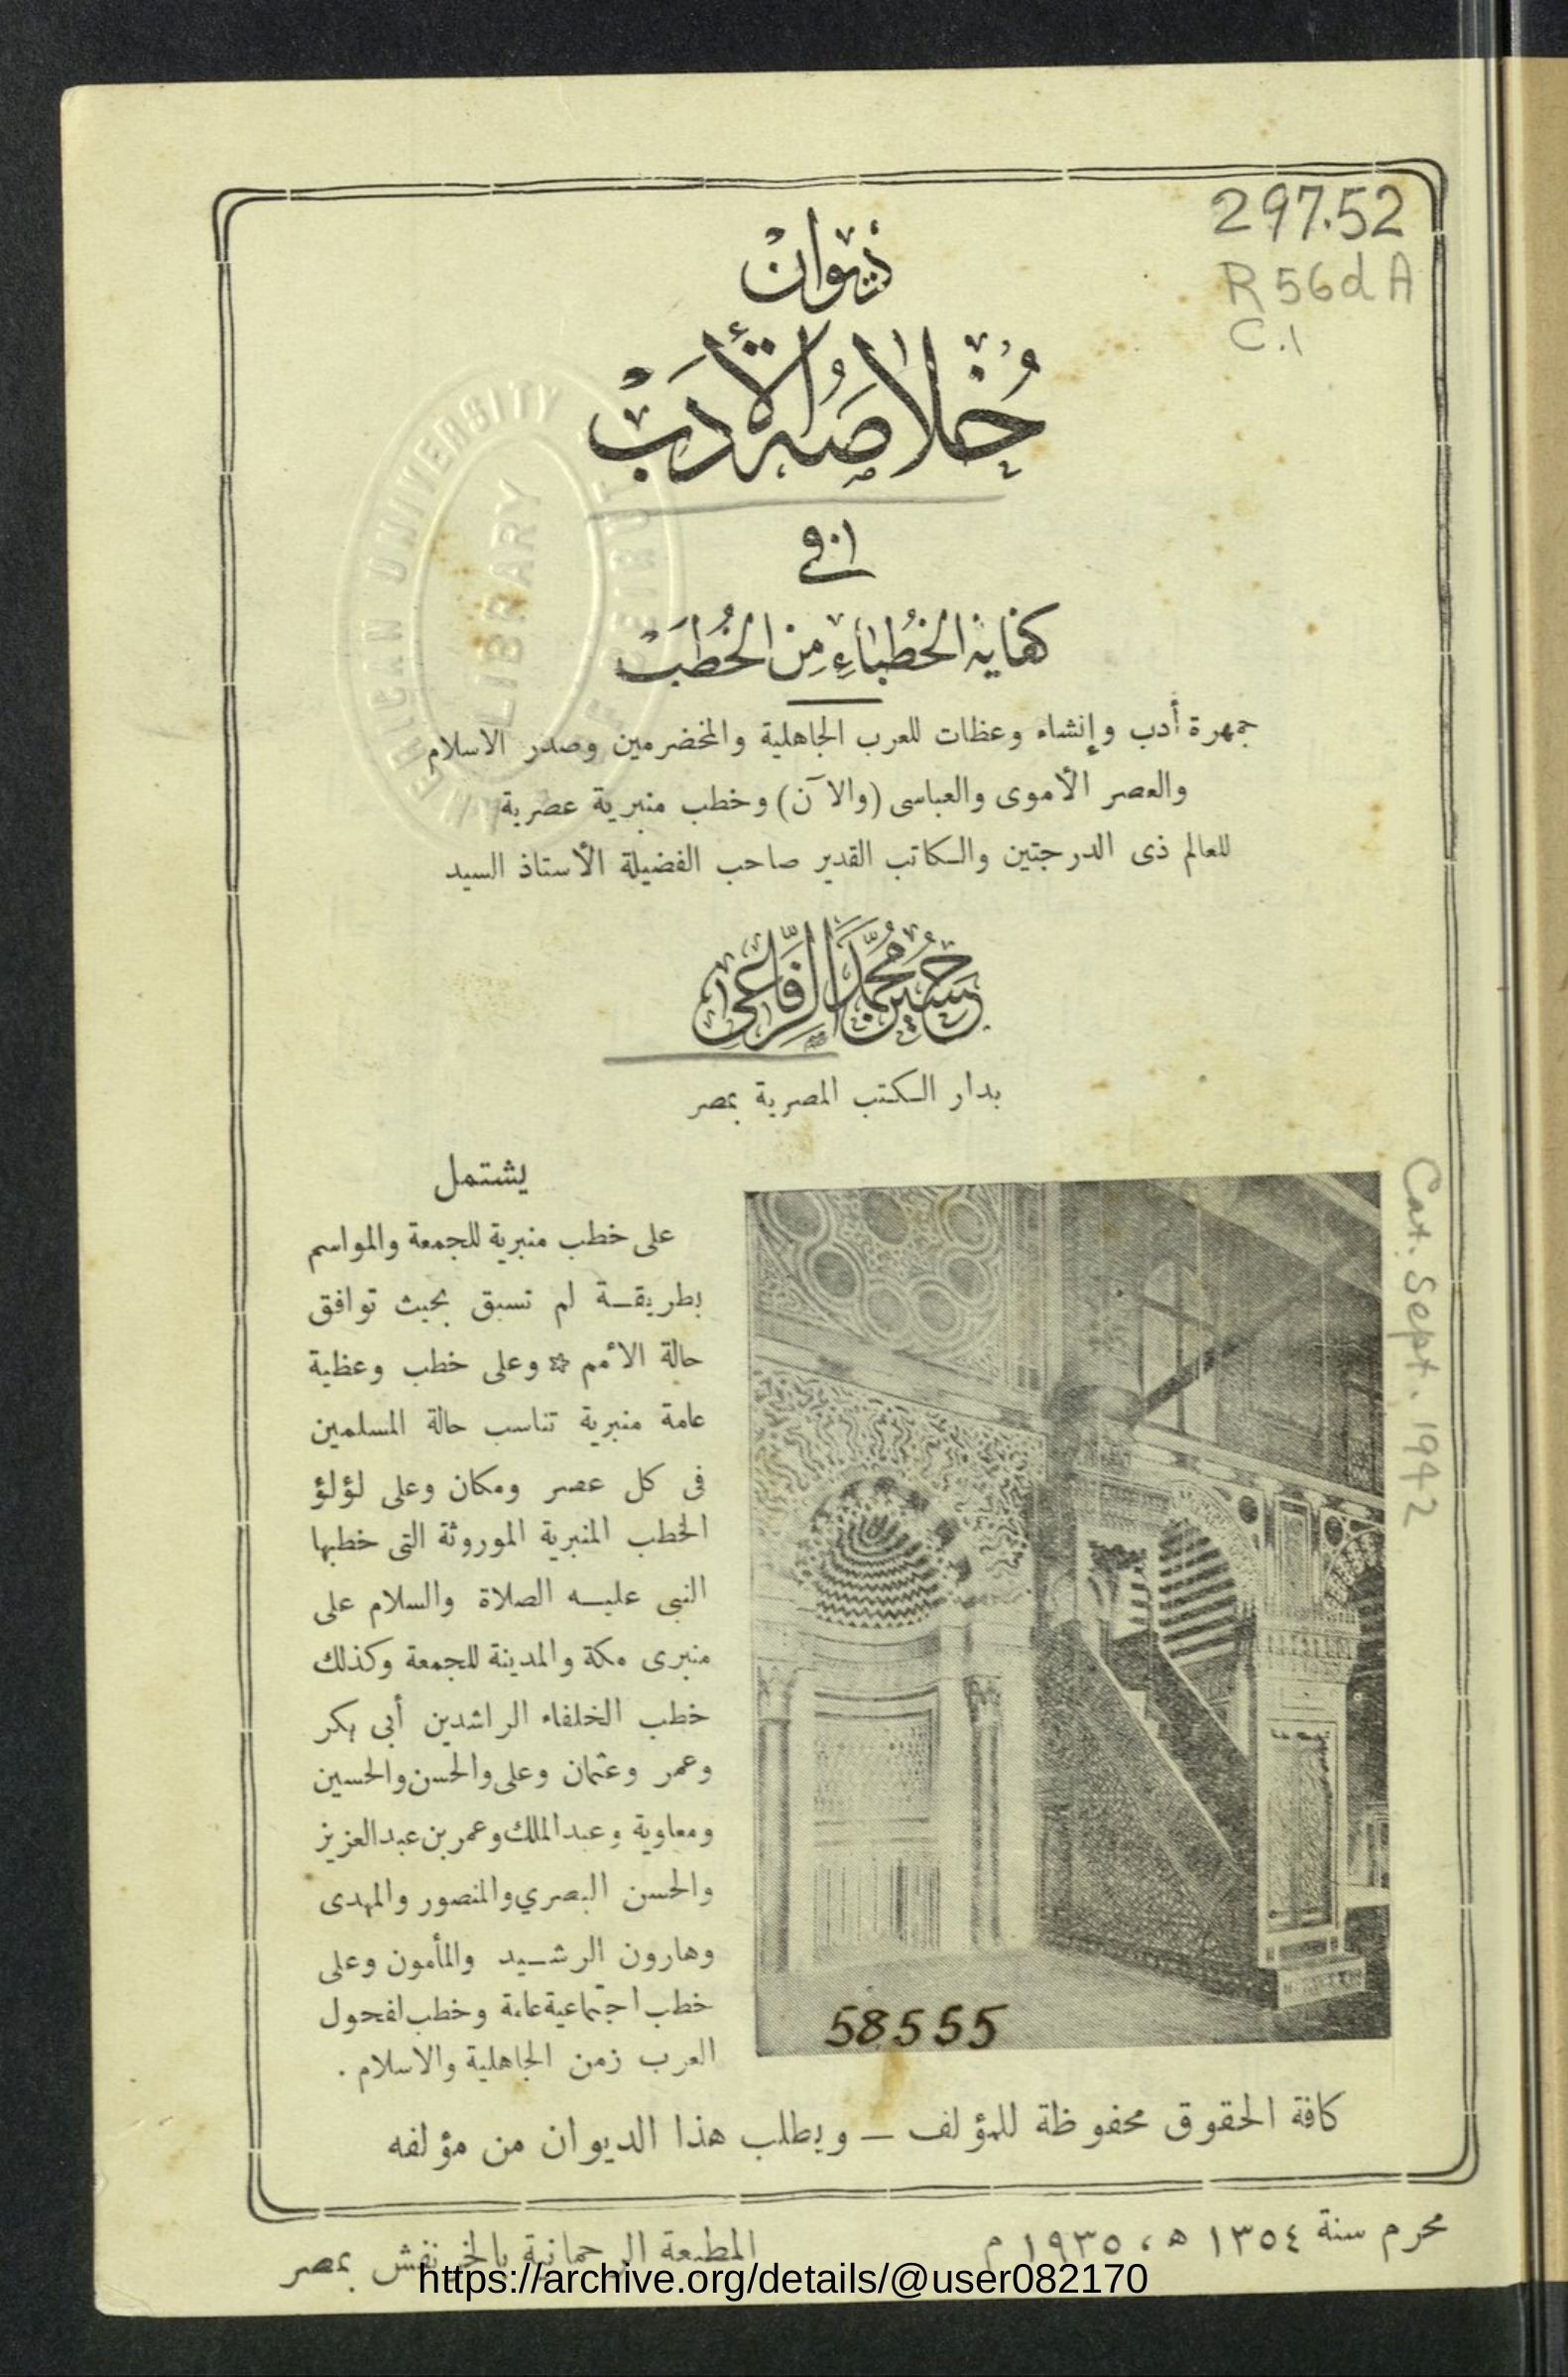 297.52
R56dA
C.1
ديوان
خُلاصَةُ الأدَبْ
في
كفاية الخُطَباءِ مِنَ الخُطَبْ
جمهرة أدب وإنشاء وعظات للعرب الجاهلية والمخضرمين وصدر الاسلام
والعصر الأموى والعباسى (والآن) وخطب منبرية عصرية
للعالم ذى الدرجتين والكاتب القدير صاحب الفضيلة الأستاذ السيد
حسين محمد الرفاعى
بدار الكتب المصرية بمصر
يشتمل
على خطب منبرية للجمعة والمواسم
بطريقة لم تسبق بحيث توافق
حالة الأمم ✩ وعلى خطب وعظية
عامة منبرية تناسب حالة المسلمين
فى كل عصر ومكان وعلى لؤلؤ
الخطب المنبرية الموروثة التى خطبها
النبى عليه الصلاة والسلام على
منبرى مكة والمدينة للجمعة وكذلك
خطب الخلفاء الراشدين أبى بكر
وعمر وعثمان وعلى والحسن والحسين
ومعاوية وعبد الملك وعمر بن عبد العزيز
والحسن البصري والمنصور والمهدى
وهارون الرشيد والمأمون وعلى
خطب اجتماعية عامة وخطب لفحول
العرب زمن الجاهلية والاسلام .
Cat. Sept. 1942
58555
كافة الحقوق محفوظة للمؤلف — ويطلب هذا الديوان من مؤلفه
محرم سنة ١٣٥٤ ه ، ١٩٣٥ م
المطبعة الرحمانية بالخرنفش بمصر
https://archive.org/details/@user082170
AMERICAN UNIVERSITY OF BEIRUT
LIBRARY